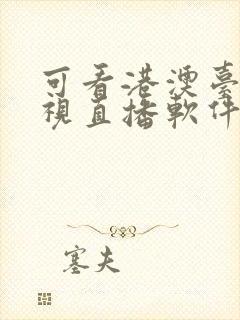 可看港澳臺
視直播軟件
塞夫